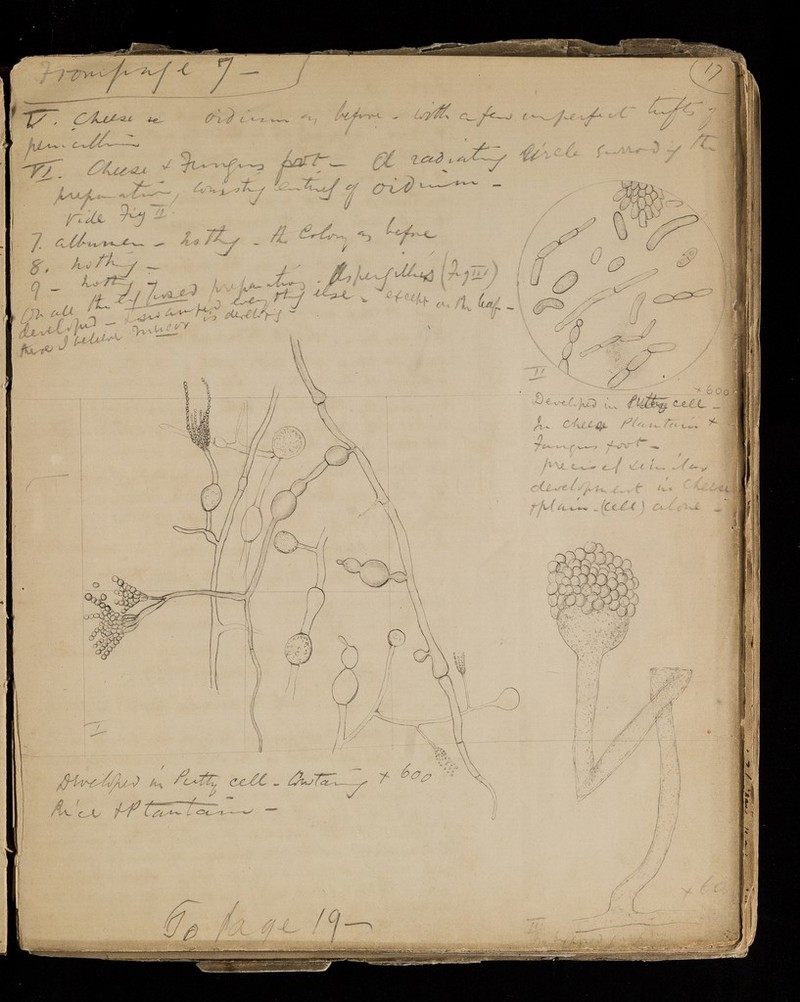 From page 7 -
17
V. Cheese &c oidium as before - with a few imperfect tufts of
penicillium
VI. Cheese & Fungus foot - A radiating circle surroundg the
preparation, consistg entirely of oidium -
Vide Fig II.
7. albumen - nothg - the Colony as before
8. nothg -
9 - nothg -
On all the preparation. Aspergillus (Fig III)
developed - & swamped everythg else - except on the leaf -
there I believe mucor is developg -
II
× 600
Developed in Putty cell -
In cheese Plantain +
Fungus foot -
precisely similar
development in Cheese
+ plain - (cell) alone -
I
Developed in Putty cell - Containg × 600
Rice + Plantain -
To page 19 -
× 60
III